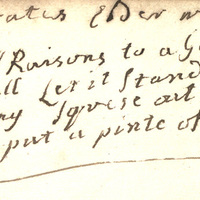 rates Elder w
Raisons to a Ga
ll Let it Stand
ny Squese out
put a pinte of